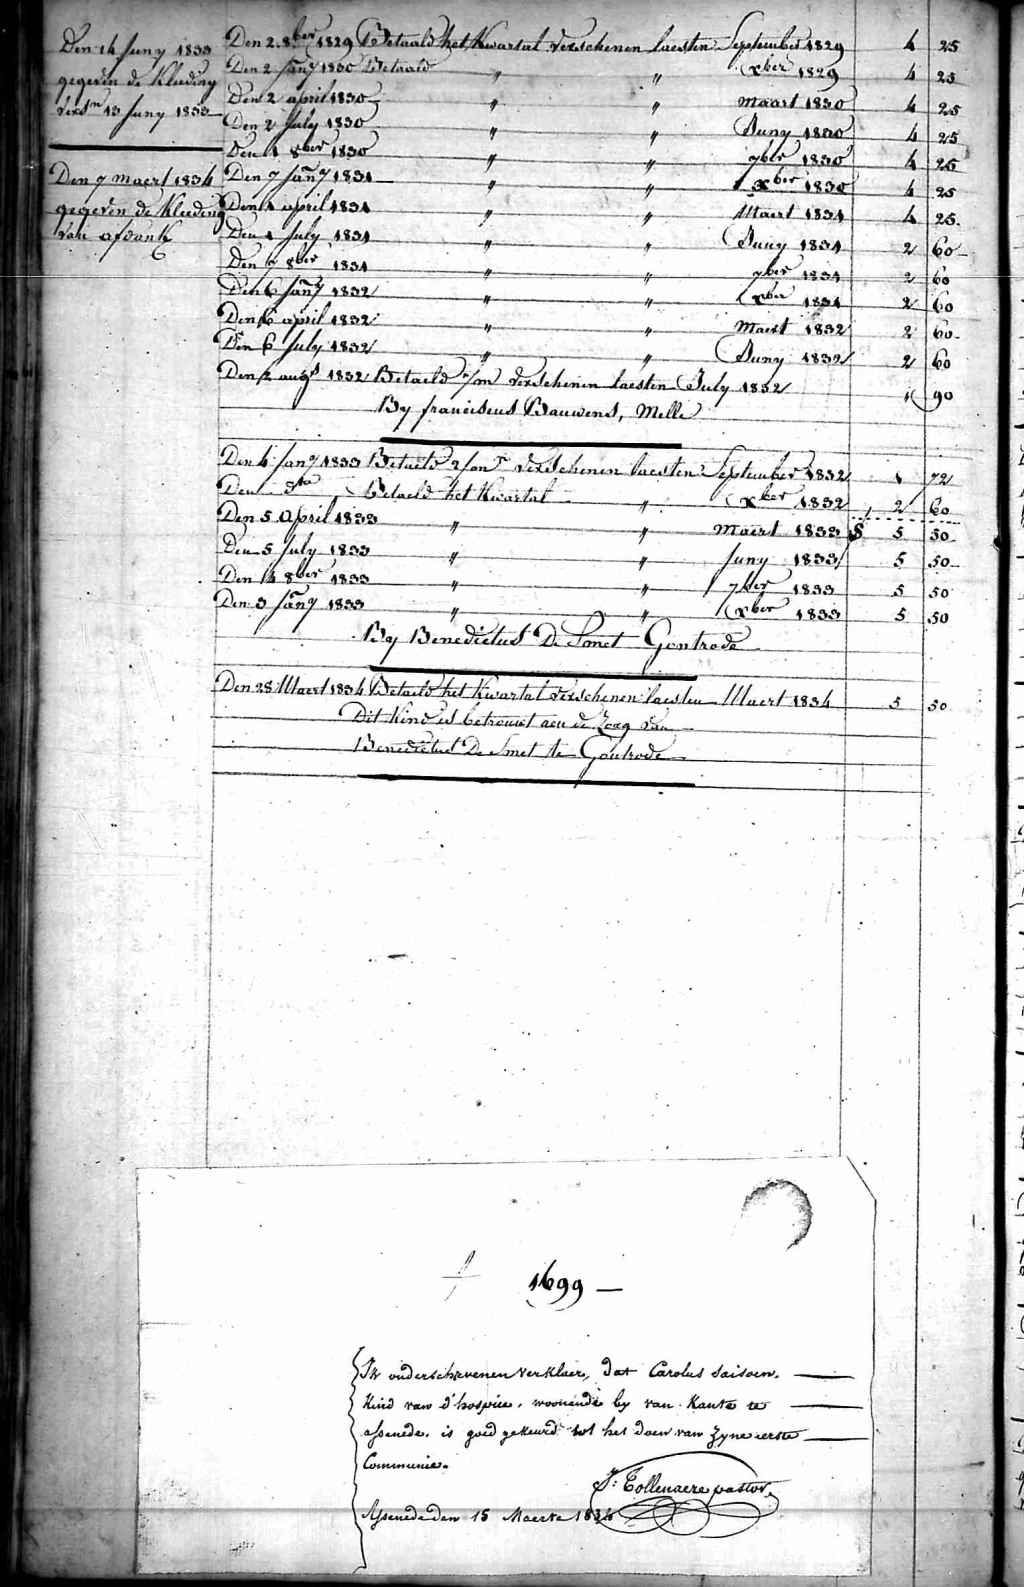 Den 14 Juny 1833
gegeven de Kleeding
versn 13 Juny 1833
Den 7 maert 1834
gegeven de Kleeding
van afdank
Den 2. 8ber 1829 Betaald het Kwartal verschenen laesten September 1829 4 25
Den 2 Jany 1830 Betaald " " xber 1829 4 25
Den 2 april 1830 " " maart 1830 4 25
Den 2 July 1830 " " Juny 1830 4 25
Den 1 8ber 1830 " " 7ber 1830 4 25
Den 7 Jany 1831 " " xber 1830 4 25
Den 1 april 1831 " " Maert 1831 4 25.
Den 1 July 1831 " " Juny 1831 2 60
Den 7 8ber 1831 " " 7ber 1831 2 60
Den 6 Jany 1832 " " xber 1831 2 60
Den 6 april 1832 " " Maert 1832 2 60
Den 6 July 1832 " " Juny 1832 2 60
Den 2 augs 1832 Betaeld 1/m verschenen laesten July 1832 " 90
By franciscus Bauwens, Melle
Den 4 Jany 1833 Betaeld 2/on verschenen laesten September 1832 1 72
Den dto Betaeld het Kwartal " xber 1832 2 60
Den 5 April 1833 " " Maert 1833 5 50
Den 5 July 1833 " " Juny 1833 5 50
Den 14 8ber 1833 " " 7ber 1833 5 50
Den 3 Jany 1833 " " xber 1833 5 50
By Benedictus De Smet Gontrode
Den 28 Maert 1834 Betaeld het Kwartal verschenen laesten Maert 1834 5 50
Dit Kind is betrouwt aen de Zorg van
Benedictus De Smet te Gontrode
1699
Ik onderschrevenen verklaer, dat Carolus Saisoen.
Kind van d'hospice. woonende by van Kante te
assenede. is goed gekeurd tot het doen van Zyne eerste
Communie.
J: Tollenaere pastor.
Assenede den 15 Maerte 1834